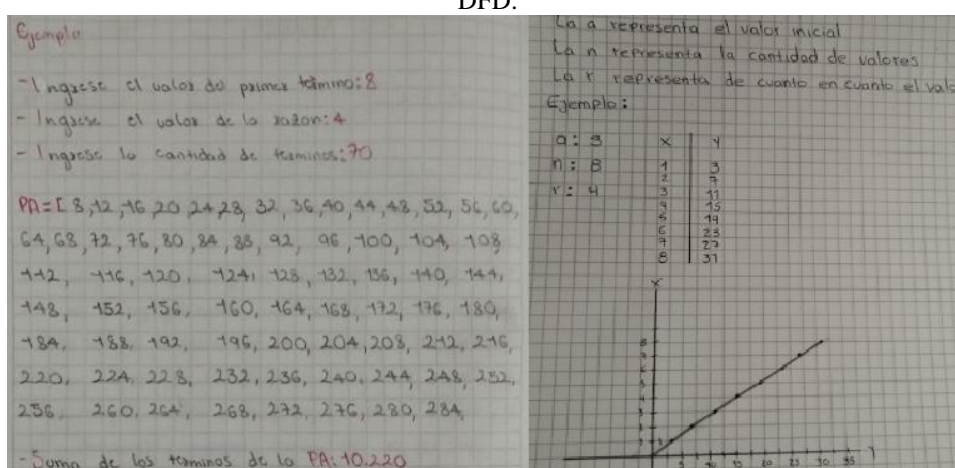 DFD.
Ejemplo
- Ingrese el valor del primer término: 8
- Ingrese el valor de la razon: 4
- Ingrese la cantidad de terminos: 70
PA = [ 8, 12, 16, 20, 24, 28, 32, 36, 40, 44, 48, 52, 56, 60,
64, 68, 72, 76, 80, 84, 88, 92, 96, 100, 104, 108
112, 116, 120, 124, 128, 132, 136, 140, 144,
148, 152, 156, 160, 164, 168, 172, 176, 180,
184, 188, 192, 196, 200, 204, 208, 212, 216,
220, 224, 228, 232, 236, 240, 244, 248, 252,
256, 260, 264, 268, 272, 276, 280, 284,
- Suma de los terminos de la PA: 10.220
La a representa el valor inicial
La n representa la cantidad de valores
La r representa de cuanto en cuanto el valo
Ejemplo:
a: 3
n: 8
r: 4
x y
1 3
2 7
3 11
4 15
5 19
6 23
7 27
8 31
x
y